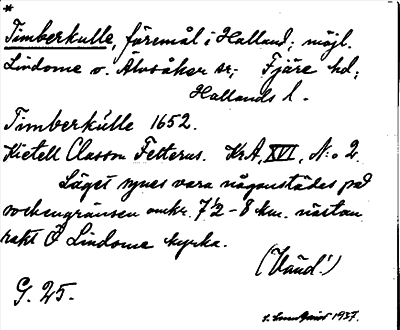 *
Timberkulle, föremål i Halland; möjl.
Lindome o. Älvsåker sn; Fjäre hd;
Hallands l.
Timberkulle 1652.
Kietell Classon Felterus. KrA, XVI, N:o 2.
Läget synes vara någonstädes på
sockengränsen omkr. 7 1/2 - 8 km. nästan
rakt Ö Lindome kyrka.
(Vänd!)
G. 25.
1937.